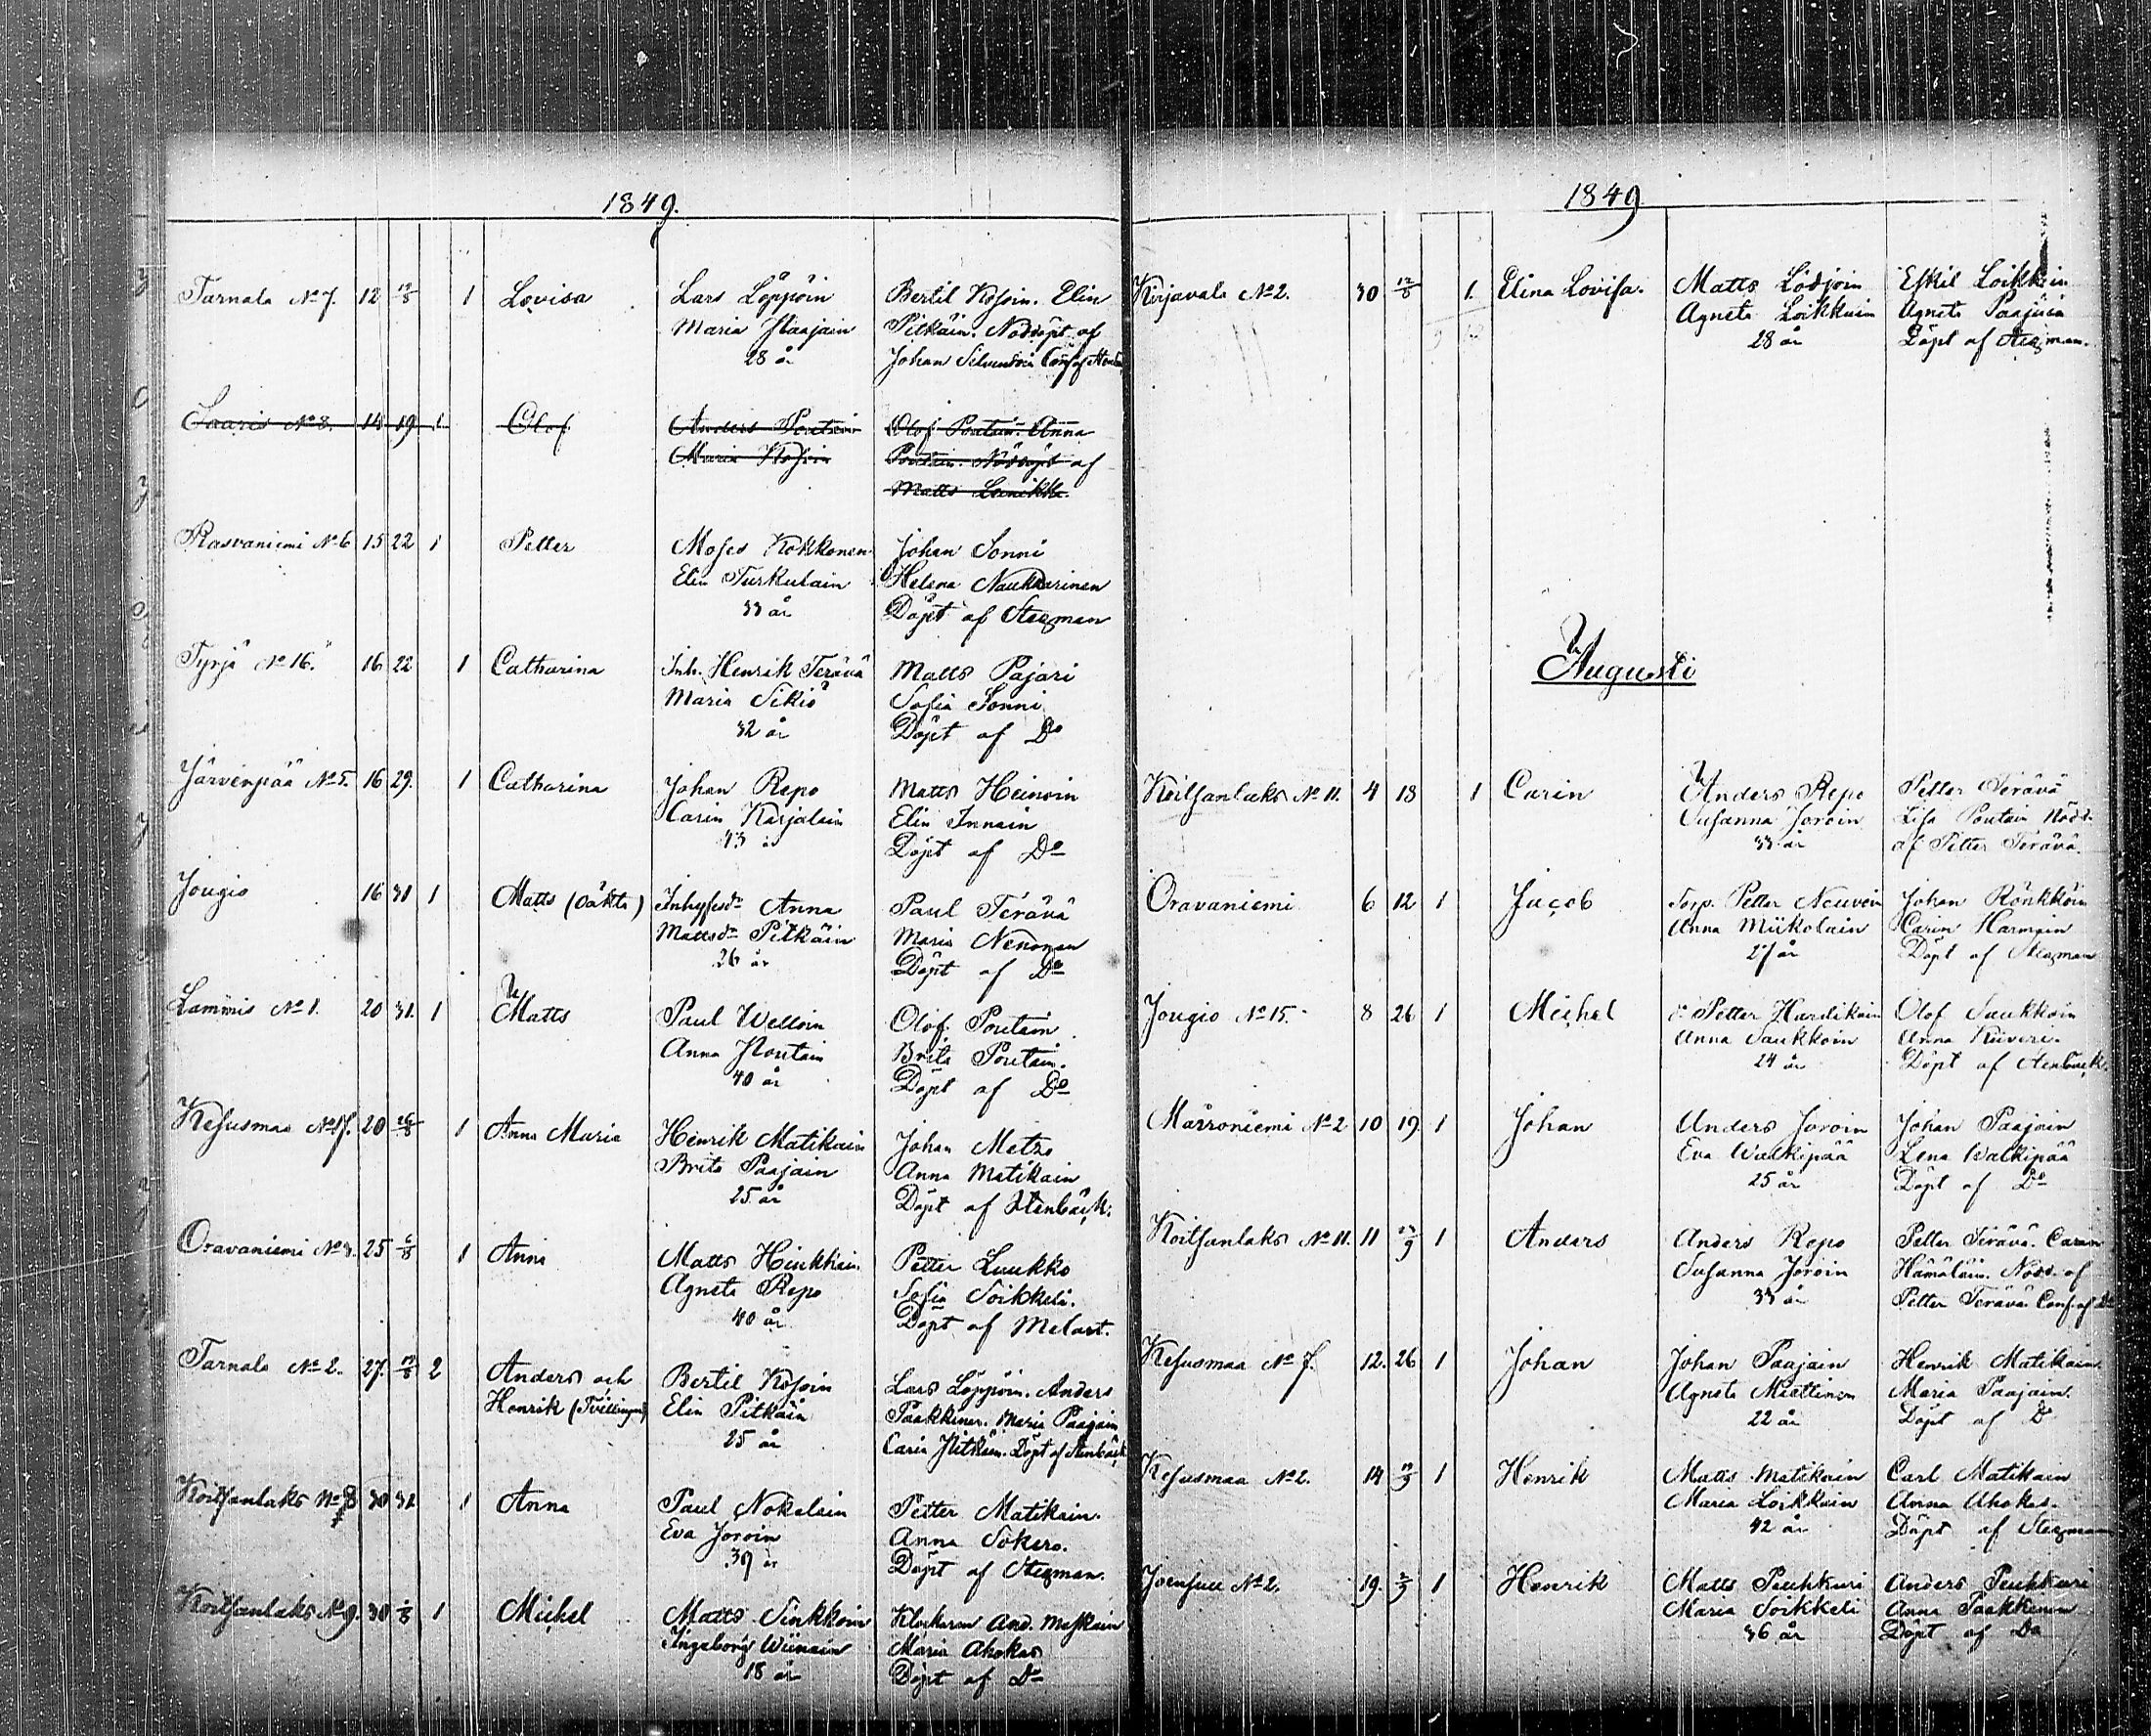 1849.
Tarnala No 7. 12 12/8 1 Lovisa Lars Löppöin Bertil Kosoin. Elin
Maria Paajain Pitkäin. Nöddöpt af
28 år Johan
Saaris No 8. 14 19 1 Olof Anders Poutain Olof Poutain. Anna
Maria Kosoin Poutain. Nöddöpt af
Matts
Rasvaniemi No 6 15 22 1 Petter Moses Kokkonen Johan Sonni
Elin Turkulain Helena Naukkarinen
33 år Döpt af Stegman
Tyrjä No 16. 16 22 1 Catharina Inh. Henrik Terävä Matts Pajari
Maria Sikiö Sofia Sonni
32 år Döpt af Do
Järvenpää No 5. 16 29. 1 Catharina Johan Repo Matts Heinoin
Carin Karjalain Elin Innain
43 år Döpt af Do
Jougio 16 31 1 Matts (Oäkta) Inhysesdr Anna Paul Terävä
Mattsdr Pitkäin Maria Nenonen
26 år Döpt af Do
Lammis No 1. 20 31. 1 Matts Paul Welloin Olof Poutain
Anna Poutain Brita Poutain.
40 år Döpt af Do
Kesusmaa No 17. 20 26/8 1 Anna Maria Henrik Matikain Johan Metzo
Brita Paajain Anna Matikain
25 år Döpt af Stenbäck.
Oravaniemi No 3. 25 6/8 1 Anna Matts Heikkäin Petter Luukko
Agneta Repo Sofia Soikkeli.
40 år Döpt af Melart.
Tarnala No 2. 27. 12/8 2 Anders och Bertil Kosoin Lars Löppöin. Anders
Henrik (Tvillingar) Elin Pitkäin Paakkinen. Maria Paajain
25 år Carin Pitkäin. Döpt af Stenbäck
Koitsanlaks No 8 30 31. 1 Anna Paul Nokelain Petter Matikain.
Eva Joroin Anna Sokero.
39 år Döpt af Stegman.
Koitsanlaks No 9. 30 1 Michel Matts Sinkkoin Klockaren And. Maskain
Ingeborg Wiinain Maria Ahokas
18 år Döpt af Do
1849
Kirjavala No 2. 30 12/8 1. Elina Lovisa. Matts Lödjöin Eskil Loikkain
Agneta Loikkain Agneta Paajain
28 år Döpt af Stegman.
Augusti
Koitsanlaks No 11. 4 18 1 Carin Anders Repo Petter Terävä
Susanna Joroin Lisa Poutain Nödd.
33 år af Petter Terävä.
Oravaniemi 6 12 1 Jacob Torp. Petter Neuvoin Johan Rönkköin
Anna Miikolain Carin Harmain
27 år Döpt af Stegman
Jougio No 15. 8 26 1 Michel Petter Hardikain Olof Saukkoin
Anna Saukkoin Anna Kiiveri.
24 år Döpt af Stenbäck.
Märröniemi No 2 10 19. 1 Johan Anders Joroin Johan Paajain
Eva Walkipää Lena Walkipää
25 år Döpt af Do
Koitsanlaks No 11. 11 23/9 1 Anders Anders Repo Petter Terävä. Carin
Susanna Joroin Hämäläin. Nödd. af
33 år Petter Terävä. Conf. af Do
Kesusmaa No 7. 12. 26 1 Johan Johan Paajain Henrik Matikain.
Agneta Miettinen Maria Paajain.
22 år Döpt af Do
Kesusmaa No 2. 14 1 Henrik Matts Matikain Carl Matikain
Maria Loikkain Anna Ahokas.
42 år Döpt af Stegman
Joensuu No 2. 19. 2/9 1 Henrik Matts Puhkuri Anders Puhkuri
Maria Soikkeli Anna Paakkinen
36 år Döpt af Do